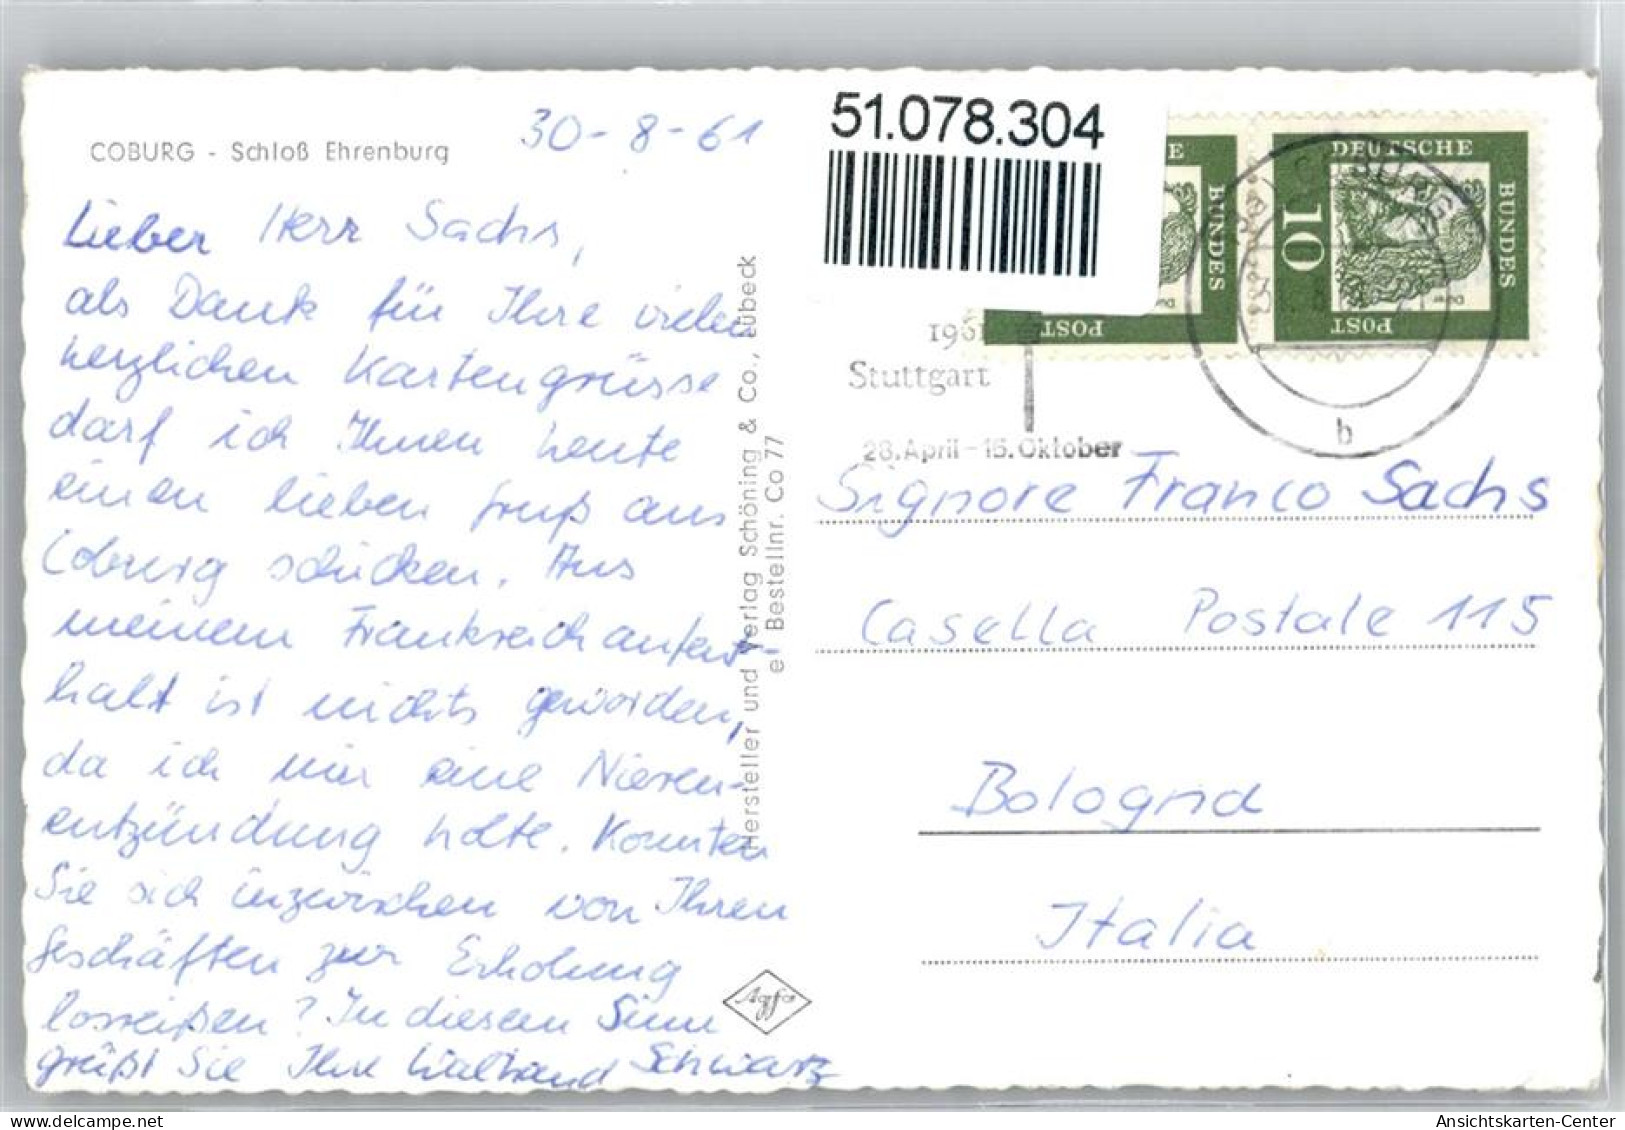 COBURG - Schloß Ehrenburg
30-8-61
Lieber Herr Sachs,
als Dank für Ihre vielen
herzlichen Kartengrüsse
darf ich Ihnen heute
einen lieben Gruß aus
Coburg schicken. Aus
meinem Frankreichaufent-
halt ist nichts geworden,
da ich mir eine Nieren-
entzündung holte. Konnten
Sie sich inzwischen von Ihren
Geschäften zur Erholung
losreißen? In diesem Sinn
grüßt Sie Ihre Waltraud Schwarz
Hersteller und Verlag Schöning & Co., Lübeck
e Bestellnr. Co 77
Agfa
51.078.304
E
BUNDES
POST
DEUTSCHE
BUNDES
POST
10
Dürer
COBURG
b
1961
Stuttgart
28. April - 15. Oktober
Signore Franco Sachs
Casella Postale 115
Bologna
Italia
Ansichtskarten-Center